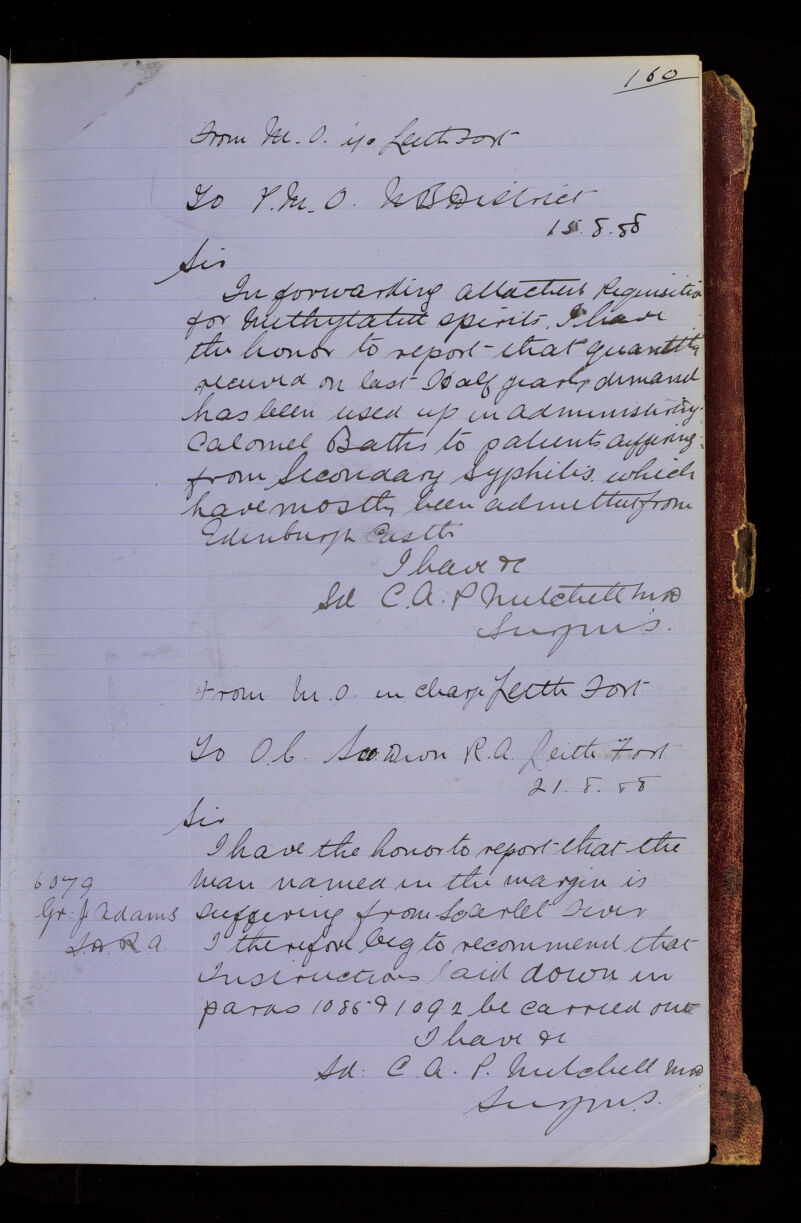 160
From M. O. i/c Leith Fort
To P. M. O. N B District
15. 8. 88
Sir
In forwarding attached Requisition
for Methylated spirits. I have
the honor to report that quantity
received on last Half years demand
has been used up in administering
Calomel Baths to patients suffering
from Secondary Syphilis. which
have mostly been admitted from
Edinburgh Castle
I have &c
Sd C. A. P. Mitchell MD
Surgn M.S.
From M. O. in charge Leith Fort
To O C. So Divn R. A. Leith Fort
21. 8. 88
Sir
I have the honor to report that the
6079
man named in the margin is
Gr. J Adams
suffering from Scarlet Fever
R. A.
I therefore beg to recommend that
Instructions laid down in
paras 1085 & 1092 be carried out
I have &c
Sd. C. A. P. Mitchell MD
Surgn M.S.